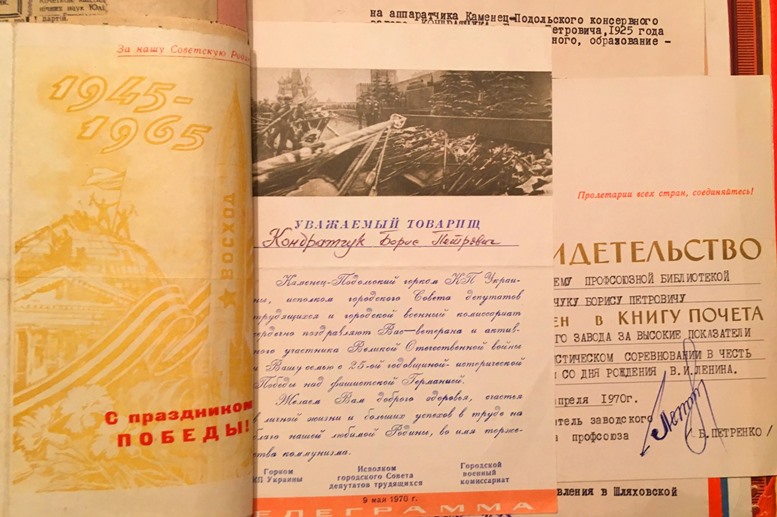 За нашу Советскую Роди
1945-
1965
ВОСХОД
С праздником
ПОБЕДЫ!
УВАЖАЕМЫЙ ТОВАРИЩ
Кондратчук Борис Петрович
Каменец-Подольский горком КП Украи-
ны, исполком городского Совета депутатов
трудящихся и городской военный комиссариат
сердечно поздравляют Вас—ветерана и актив-
ного участника Великой Отечественной войны
и Вашу семью с 25-ой годовщиной исторической
Победы над фашистской Германией.
Желаем Вам доброго здоровья, счастья
в личной жизни и больших успехов в труде на
благо нашей любимой Родины, во имя торже-
ства коммунизма.
Горком
КП Украины
Исполком
городского Совета
депутатов трудящихся
Городской
военный
комиссариат
9 мая 1970 г.
ЕЛЕГРАММА
на аппаратчика Каменец-Подольского консервного
етровича, 1925 года
ного, образование -
Пролетарии всех стран, соединяйтесь!
ИДЕТЕЛЬСТВО
ЕМУ ПРОФСОЮЗНОЙ БИБЛИОТЕКОЙ
ЧУКУ БОРИСУ ПЕТРОВИЧУ
ЕН в КНИГУ ПОЧЕТА
ГО ЗАВОДА ЗА ВЫСОКИЕ ПОКАЗАТЕЛИ
СТИЧЕСКОМ СОРЕВНОВАНИИ В ЧЕСТЬ
СО ДНЯ РОЖДЕНИЯ В.И.ЛЕНИНА.
преля 1970г.
тель заводского
а профсоюза Б.ПЕТРЕНКО/
вления в Шляховской